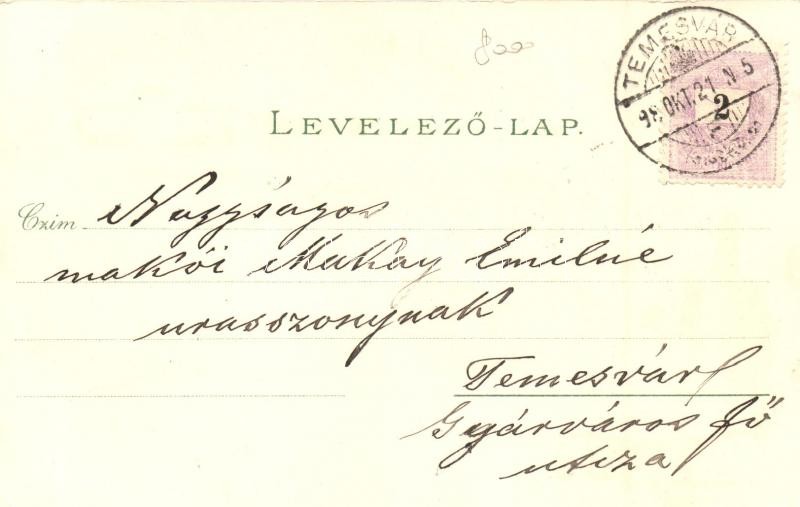 800
TEMESVÁR
98 OKT. 21 N 5
2
LEVELEZŐ-LAP.
Czim Nagyságos
makói Makay Emilné
urasszonynak
Temesvárt
Gyárváros fő
utcza